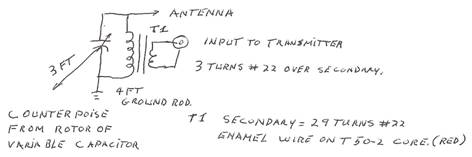 ANTENNA
T1
INPUT TO TRANSMITTER
3 FT
3 TURNS #22 OVER SECONDARY.
4 FT
GROUND ROD.
COUNTERPOISE
FROM ROTOR OF
VARIABLE CAPACITOR
T1 SECONDARY = 29 TURNS #22
ENAMEL WIRE ON T50-2 CORE. (RED)